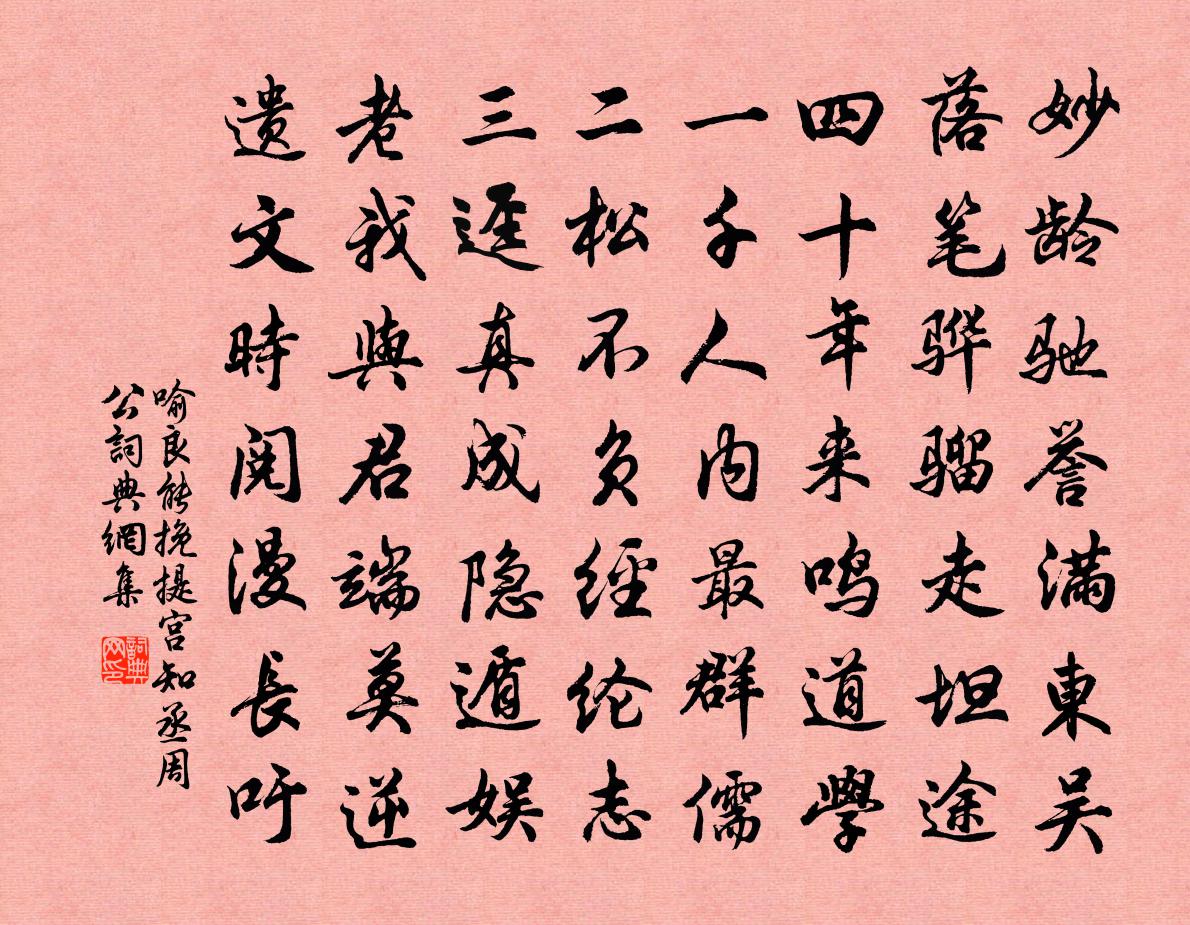 妙龄驰誉满東吴
落笔骅骝走坦途
四十年来鸣道學
一千人内最群儒
二松不负經纶志
三逕真成隐遁娱
老我與君端莫逆
遗文時阅漫長吁
喻良能挽提宫知丞周
公詞典網集
詞典网印